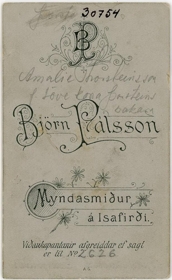 30754
BP
Amalie Thorsteinsson
Björn Pálsson
Myndasmiður
á Ísafirði.
Viðaukapantanir afgreiddar ef sagt
er til No 2626